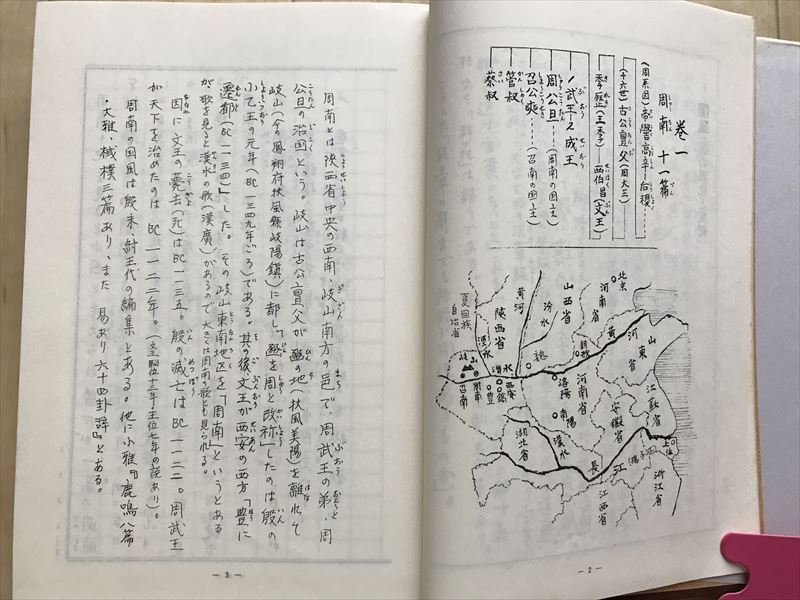 巻一
周南 十一篇
(周系図) 帝嚳高辛―后稷
(十六世) 古公亶父(周大王)
季歴(王季)―西伯昌(文王)
武王―成王
周公旦……(周南の国主)
召公奭……(召南の国主)
管叔
蔡叔
北京
河南省
山西省
汾水
黄河
陝西省
夏回族
自治省
漢水
岐山
周南
召南
渭水
豊
鎬
西安
朝歌
洛陽
河南省
南陽
黄河
山東省
江蘇省
安徽省
湖北省
漢水
長江
(揚子江)
上海
浙江省
江西省
－2－
周南とは陝西省中央の西南、岐山南方の邑で、周武王の弟、周
公旦の治国という。岐山は古公亶父が豳の地(扶風美陽)を離れて
岐山(今の鳳翔府扶風縣岐陽鎮)に都し「豳を周と改称」したのは殷の
小乙王の元年(BC一三四九年ごろ)である。其の後文王が西安の西方、豊に
遷都(BC一一三四)」した。その岐山東南地区を「周南」というとある
が、歌を見ると漢水の歌(漢廣)があるので大きくは周南の歌とも見られる。
因に文王の薨去(死)はBC一一三五。殷の滅亡はBC一一二二。周武王
が天下を治めたのはBC一一二二年。
周南の国風は殷末、紂王代の編集とある。他に小雅『鹿鳴八篇
・大雅、棫樸三篇あり、また 易あり六十四卦辞』とある。
－3－